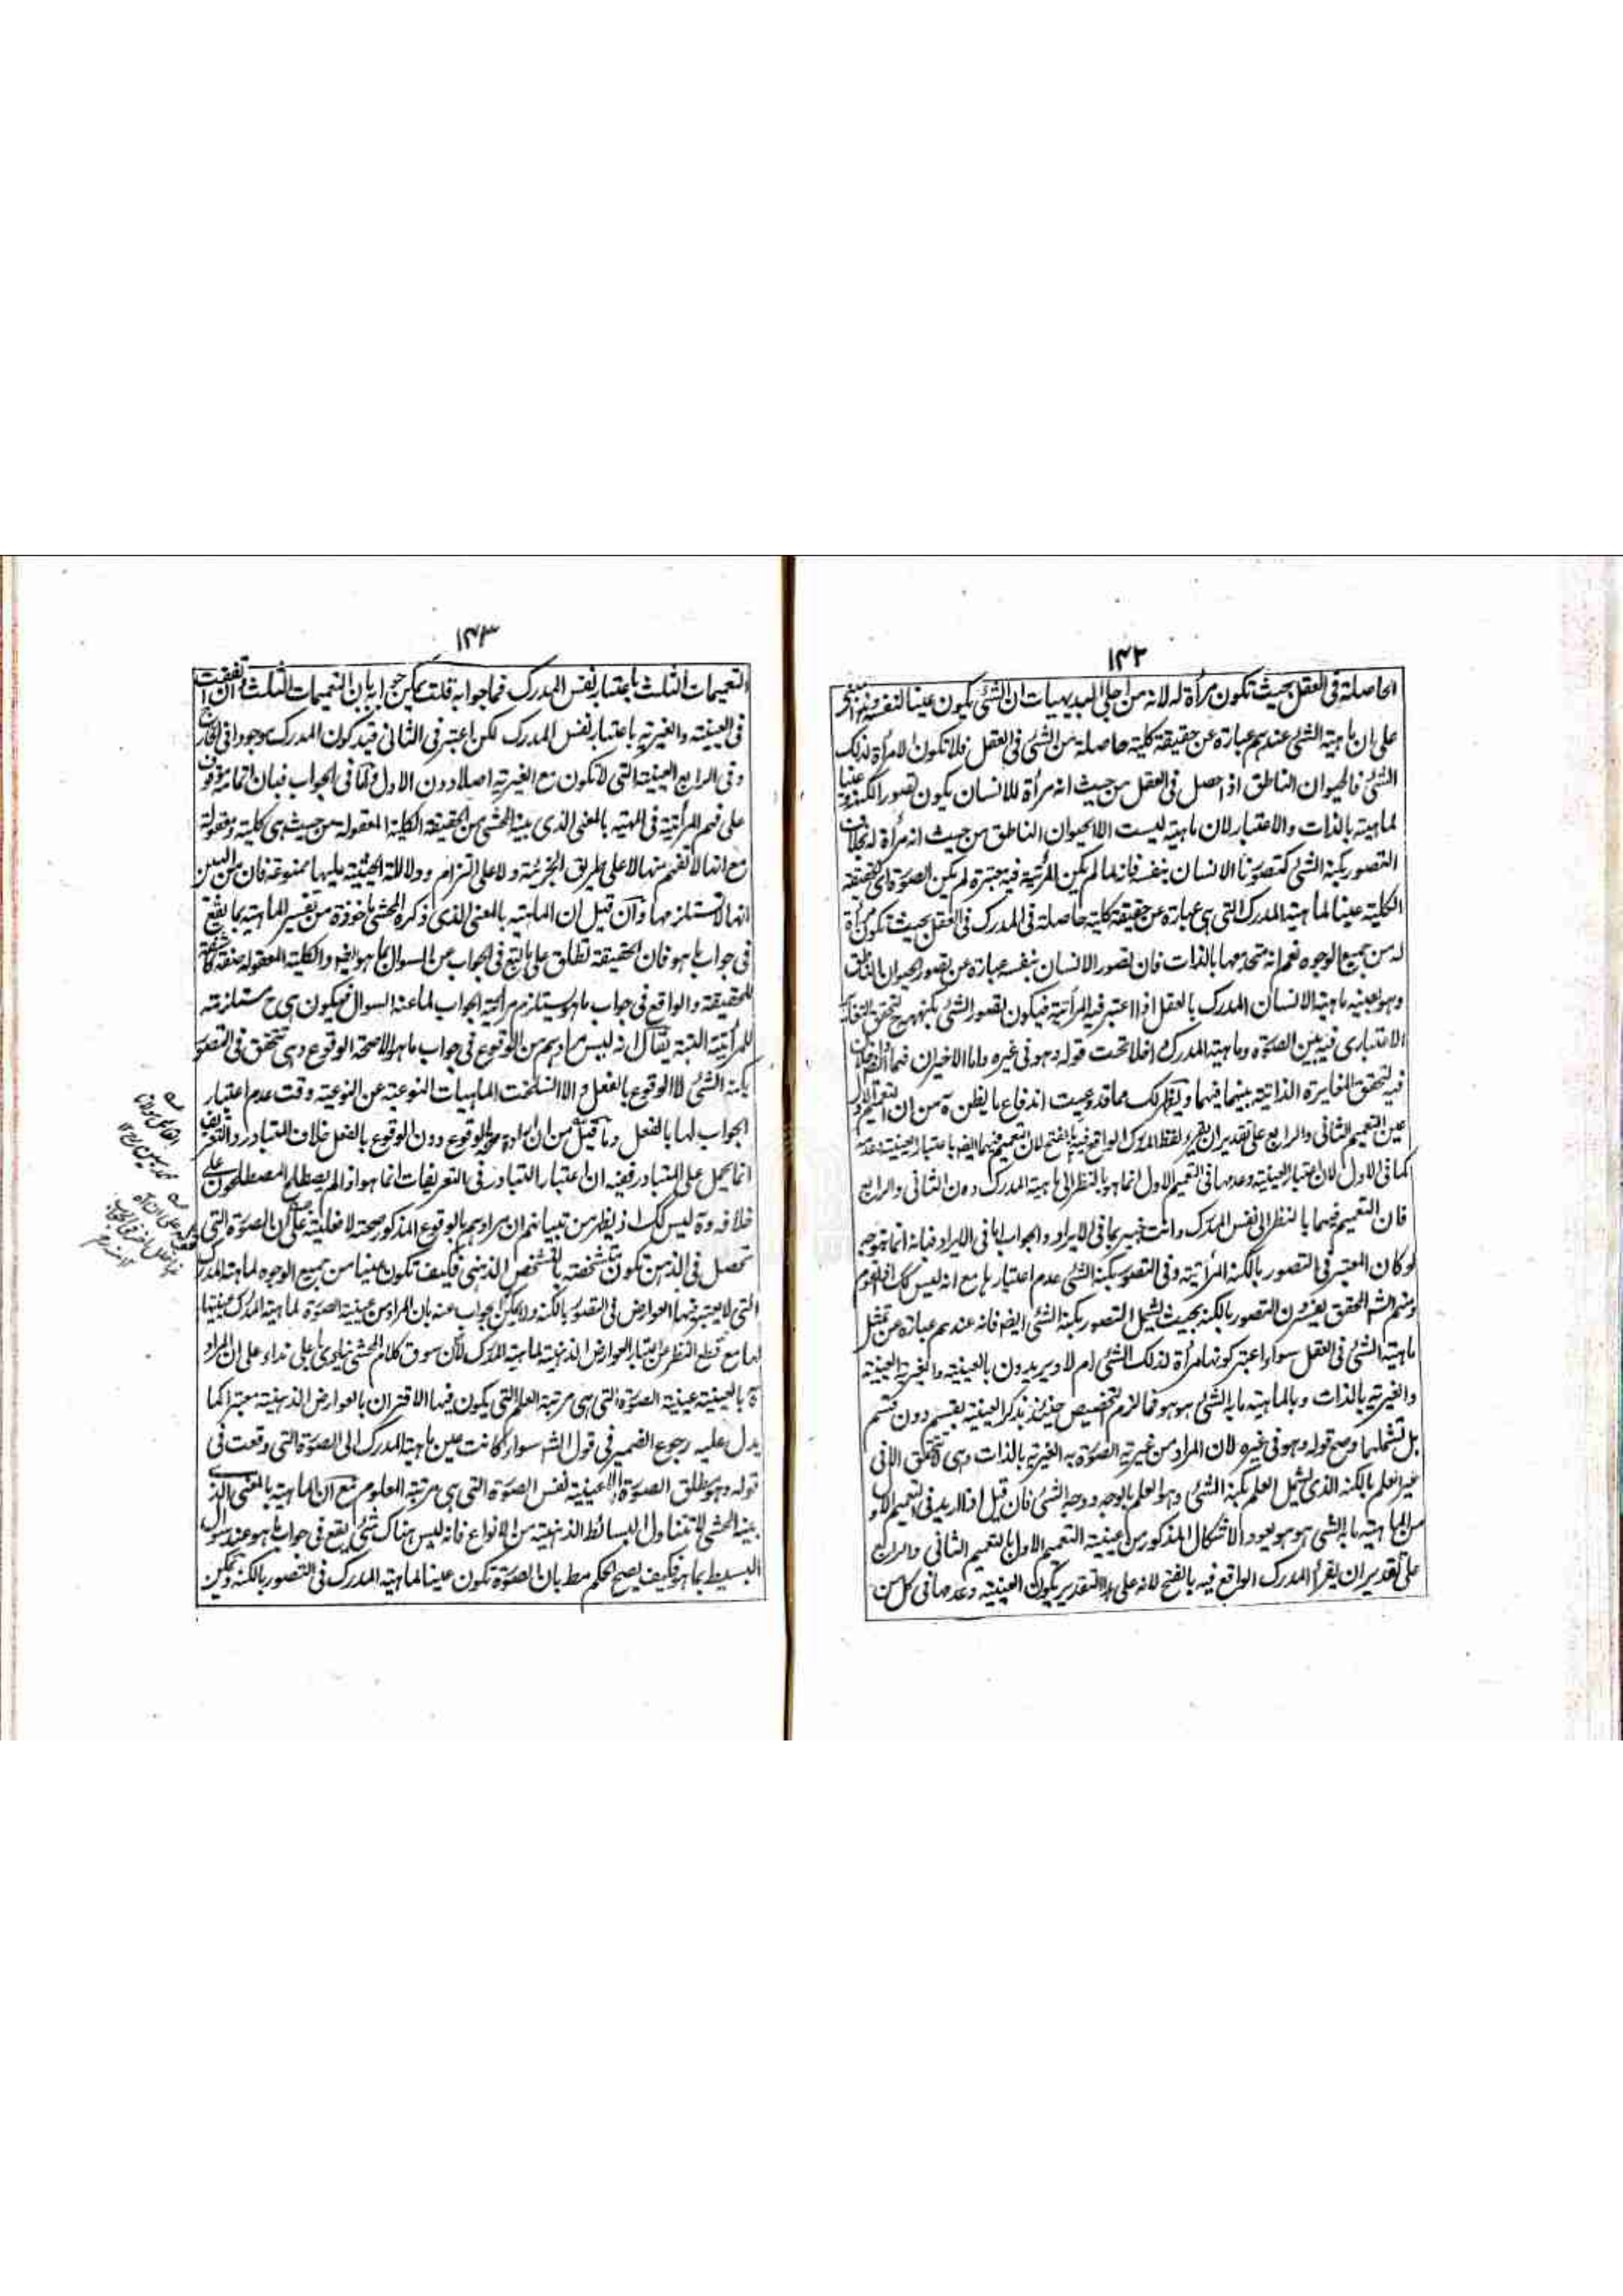 ١٤٢
الحاصلة فى العقل بحيث تكون مرأة له لانه من اجلى البديهيات ان الشئ يكون عينا لنفسه
على ان ماهية الشئ عندهم عبارة عن حقيقة كلية حاصلة من الشئ فى العقل فلا تكون الا مرأة لذلك
الشئ فالحيوان الناطق اذا حصل فى العقل من حيث انه مرأة للانسان يكون تصورا بالكنه و عينا
لماهيته بالذات والاعتبار لان ماهيته ليست الا الحيوان الناطق من حيث انه مرأة له بخلاف
التصور بكنه الشئ كتصورنا الانسان بنفسه فانه لما لم يكن المرأتية فيه معتبرة لم يكن الصورة اى الحقيقة
الكلية عينا لماهية المدرك التى هى عبارة عن حقيقة كلية حاصلة فى المدرك فى العقل بحيث تكون مرأة
له من جميع الوجوه نعم انه متحد معها بالذات فان تصور الانسان بنفسه عبارة عن تصور الحيوان الناطق
وهو بعينه ماهية الانسان المدرك بالعقل اذا اعتبر فيه المرأتية فيكون تصور الشئ بكنهه ح لتحقق التغاير
الاعتبارى فيه بين الصورة وماهية المدرك داخلا تحت قوله وهو فى غيره واما الاخيران فهما
فيه لتحقق المغايرة الذاتية بينهما فيهما ويظهر لك مما قد وعيت اندفاع ما يظن من ان التعميم الاول
عين التعميم الثانى والرابع على تقدير ان يقرء لفظ المدرك الواقع فيه بالفتح لان التعميم فيهما ايضا باعتبار العينية وعدمها
كما فى الاول لان اعتبار العينية وعدمها فى التعميم الاول انما هو بالنظر الى ماهية المدرك دون الثانى والرابع
فان التعميم فيهما بالنظر الى نفس المدرك وانت خبير بما فى الايراد والجواب اما فى الايراد فبانه انما يتوجه
لو كان المعتبر فى التصور بالكنه المرأتية وفى التصور بكنه الشئ عدم اعتبارها مع انه ليس كك اذ القوم
ومنهم الشه المحقق يفسرون التصور بالكنه بحيث يشمل التصور بكنه الشئ ايضا فانه عندهم عبارة عن تمثل
ماهية الشئ فى العقل سواء اعتبر كونها مرأة لذلك الشئ ام لا ويريدون بالعينية والغيرية العينية
والغيرية بالذات وبالماهية ما به الشئ هو هو فما لزم التخصيص حينئذ بذكر العينية بقسم دون قسم
بل تشملهما وصح قوله وهو فى غيره لان المراد من غيرية الصورة به الغيرية بالذات وهى لا تتحقق الا فى
غير العلم بالكنه الذى يشمل العلم بكنه الشئ وهو العلم بالوجه ووجه الشئ فان قيل اذا اريد فى التعميم الاول
من الماهية ما به الشئ هو هو يعود الاشكال المذكور من عينية التعميم الاول بالتعميم الثانى والرابع
على تقدير ان يقرأ المدرك الواقع فيه بالفتح لانه على هذا التقدير يكون العينية وعدمها فى كل من
١٤٣
التعميمات الثلث باعتبار نفس المدرك فما جوابه قلت يمكن جوابه بان التعميمات الثلث وان اتفقت
فى العينية والغيرية باعتبار نفس المدرك لكن اعتبر فى الثانى قيد كون المدرك موجودا فى الخارج
وفى الرابع العينية التى لا تكون مع الغيرية اصلا دون الاول واما فى الجواب فبان اتمامه موقوف
على فهم المرأتية فى المهية بالمعنى الذى بينه المحشى من الحقيقة الكلية المعقولة من حيث هى كلية ومعقولة
مع انها لا تفهم منها لا على طريق الجزئية ولا على التزام ودلالة الحيثية عليها ممنوعة فان من البين
انها لا تستلزمها وان قيل ان الماهية بالمعنى الذى ذكره المحشى ماخوذة من تفسير للماهية بما يقع
فى جواب ما هو فان الحقيقة تطلق على ما يقع فى الجواب عن السوال بما هو ايضا والكلية المعقولة صفة كاشفة
للحقيقة والواقع فى جواب ما هو يستلزم مرأتية الجواب لما عنه السوال فيكون هى ح مستلزمة
للمرأتية البتة يقال انه ليس مرادهم من الوقوع فى جواب ما هو الا صحة الوقوع وهى تتحقق فى التصور
بكنه الشئ لا الوقوع بالفعل والا انسلخت الماهيات النوعية عن النوعية وقت عدم اعتبار
الجواب لها بالفعل وما قيل من ان ارادة صحة الوقوع دون الوقوع بالفعل خلاف المتبادر والتعريف
انما يحمل على المتبادر ففيه ان اعتبار التبادر فى التعريفات انما هو اذا لم يصطلح المصطلحون على
خلافه وه ليس كك اذ يظهر من تبيانهم ان مرادهم بالوقوع المذكور صحته لا فعليته على ان الصورة التى
تحصل فى الذهن تكون متشخصة بالتشخص الذهنى فكيف تكون عينا من جميع الوجوه لماهية المدرك
التى لا يعتبر فيها العوارض فى التصور بالكنه ولا يمكن الجواب عنه بان المراد من عينية الصورة لماهية المدرك عينيتها
لها مع قطع النظر عن اعتبار العوارض الذهنية لماهية المدرك لان سوق كلام المحشى ينادى باعلى نداء على ان المراد
بالعينية عينية الصورة التى هى مرتبة العلم التى يكون فيها الاقتران بالعوارض الذهنية معتبرا كما
يدل عليه رجوع الضمير فى قول الشه سواء كانت عين ماهية المدرك الى الصورة التى وقعت فى
قوله وهو مطلق الصورة لا عينية نفس الصورة التى هى مرتبة المعلوم مع ان الماهية بالمعنى الذى
بينه المحشى لا تتناول البسائط الذهنية من الانواع فانه ليس هناك شئ يقع فى جواب ما هو عند سوال
البسيط بما هو فكيف يصح الحكم مط بان الصورة تكون عينا لماهية المدرك فى التصور بالكنه ويمكن